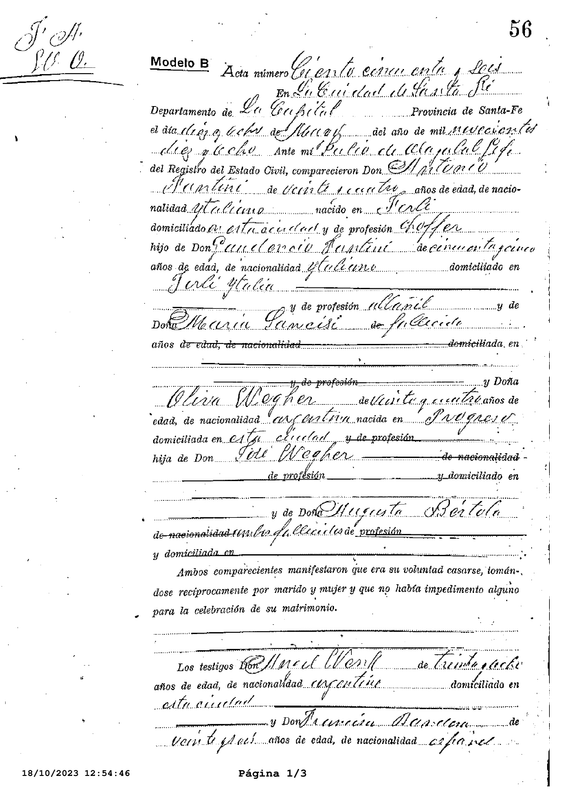 56
J. A.
Modelo B Acta número Ciento cincuenta y seis
En La Ciudad de Santa Fé
Departamento de La Capital Provincia de Santa-Fe
el día diez y ocho de del año de mil novecientos
diez y ocho Ante mi Julio de Jefe
del Registro del Estado Civil, comparecieron Don Antonio
Fantini de veinte cuatro años de edad, de nacio-
nalidad ytaliano nacido en Forli
domiciliado en esta ciudad y de profesión choffer
hijo de Don Fantini de cincuenta cinco
años de edad, de nacionalidad ytaliano domiciliado en
Forli ytalia
y de profesión albañil y de
Doña Maria Lancisi de fallecida
años de edad, de nacionalidad domiciliada, en
y de profesión y Doña
Oliva Wegher de veinte y cuatro años de
edad, de nacionalidad argentina nacida en Progreso
domiciliada en esta ciudad y de profesión
hija de Don José Wegher de nacionalidad
de profesión y domiciliado en
y de Doña Augusta Bértola
de nacionalidad ambos fallecidos de profesión
y domiciliada en
Ambos comparecientes manifestaron que era su voluntad casarse, tomán-
dose recíprocamente por marido y mujer y que no había impedimento alguno
para la celebración de su matrimonio.
Los testigos Don Angel de treinta y ocho
años de edad, de nacionalidad argentino domiciliado en
esta ciudad
y Don Francisco de
veinte y seis años de edad, de nacionalidad español
18/10/2023 12:54:46 Página 1/3